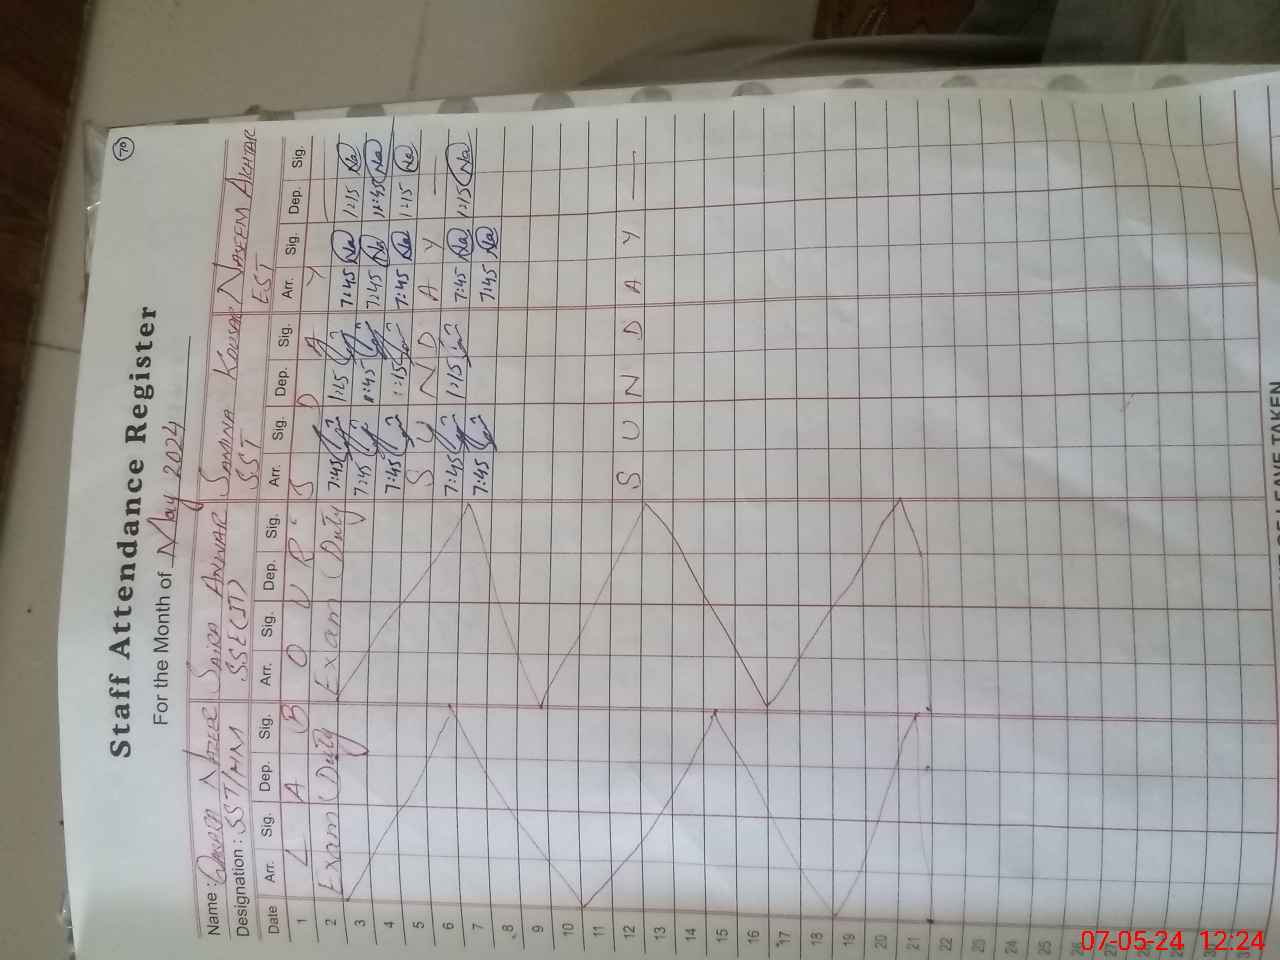 70
Staff Attendance Register
For the Month of May 2024
Name: Nazir Saira Anwar Samina Kousar Nayeem Akhtar
Designation: SST/HM SSE(IT) SST EST
Date Arr. Sig. Dep. Sig. Arr. Sig. Dep. Sig. Arr. Sig. Dep. Sig. Arr. Sig. Dep. Sig.
1 L A B O U R S D A Y
2 Exam Duty Exam Duty 7:45 1:15 7:45 Na 1:15 Na
3 7:45 7:45 Na Na
4 7:45 1:15 7:45 Na 1:15 Na
5 S U N D A Y
6 7:45 1:15 7:45 Na 1:15 Na
7 7:45 7:45 Na
8
9
10
11
12 S U N D A Y
13
14
15
16
17
18
19
20
21
22
23
24
25
26
27
28
29
30
OF LEAVE TAKEN
07-05-24 12:24